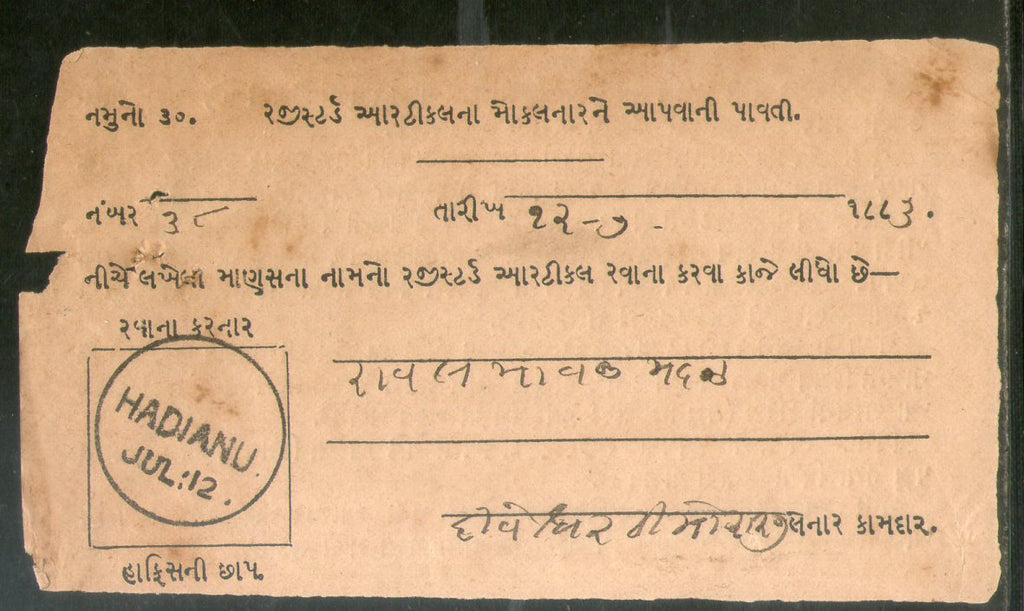 નમુનો ૩૦. રજીસ્ટર્ડ આરટીકલના મોકલનારને આપવાની પાવતી.
નંબર ૩૮ તારીખ ૧૨-૭ ૧૮૮૩.
નીચે લખેલા માણસના નામનો રજીસ્ટર્ડ આરટીકલ રવાના કરવા કાજે લીધો છે—
રવાના કરનાર
રાવલ માવજી
HADIANU.
JUL:12.
લેનાર કામદાર.
હાફિસની છાપ.